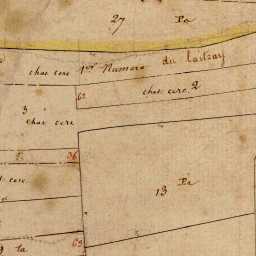 27 Pa
1er Numero du
chat cere
62
chat cere 2
3
chat cere
36
cere
13 Pa
63
9 la